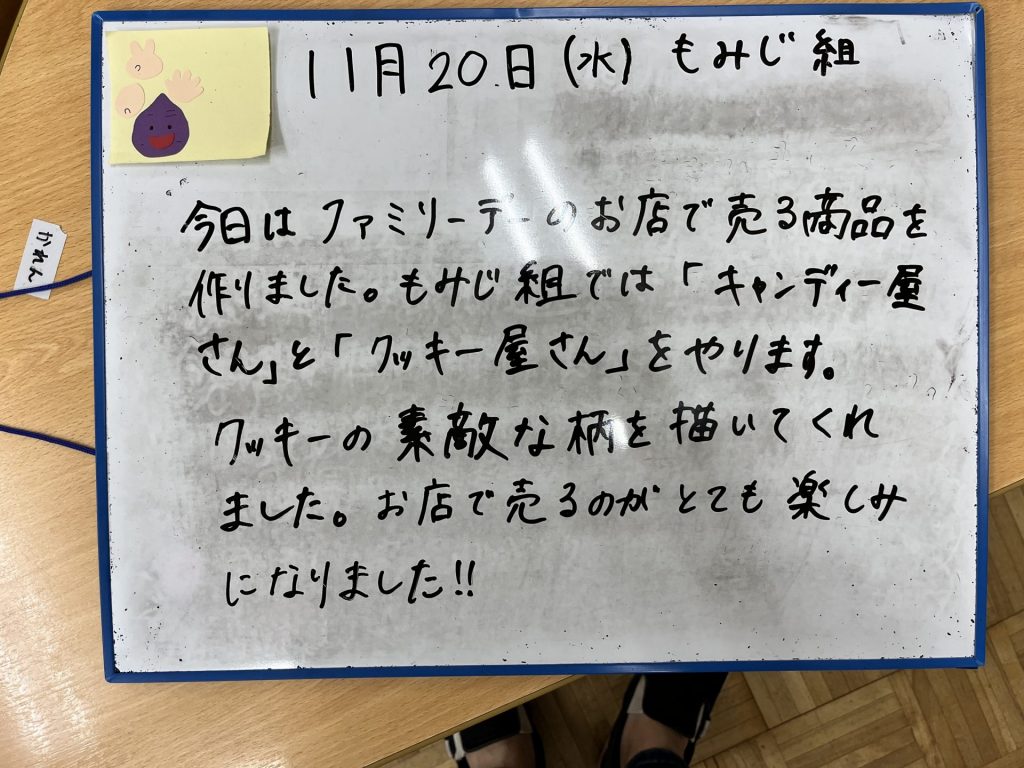 11月20日(水) もみじ組
今日はファミリーデーのお店で売る商品を
作りました。もみじ組では「キャンディー屋
さん」と「クッキー屋さん」をやります。
クッキーの素敵な柄を描いてくれ
ました。お店で売るのがとても楽しみ
になりました!!
かれん